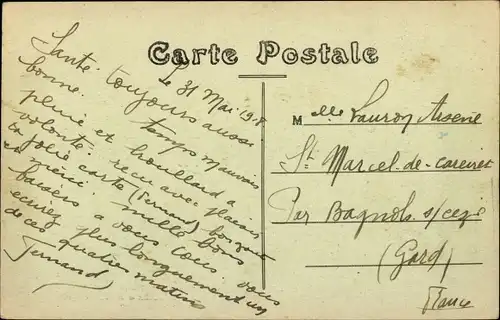 Carte Postale
le 31 Mai 1918
Santé toujours aussi
bonne. temps mauvais
pluie et brouillard a
volonté. recu avec plaisir
ta jolie carte (Fernand) bonsoir
et merci. mille bons
baisers a vous tous
ecrirez plus longuement un
de ces quatres matins
Fernand
Melle Lauron Arsene
St Marcel-de-careiret
Par Bagnols s/ceze
(Gard)
France